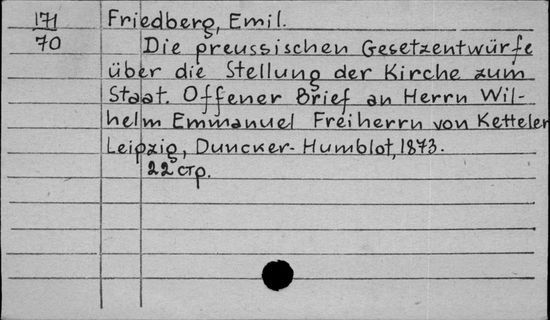 171 Friedberg, Emil.
70 Die preussischen Gesetzentwürfe
über die Stellung der Kirche zum
Staat. Offener Brief an Herrn Wil-
helm Emmanuel Freiherrn von Ketteler
Leipzig, Duncker-Humblot, 1873.
22 стр.